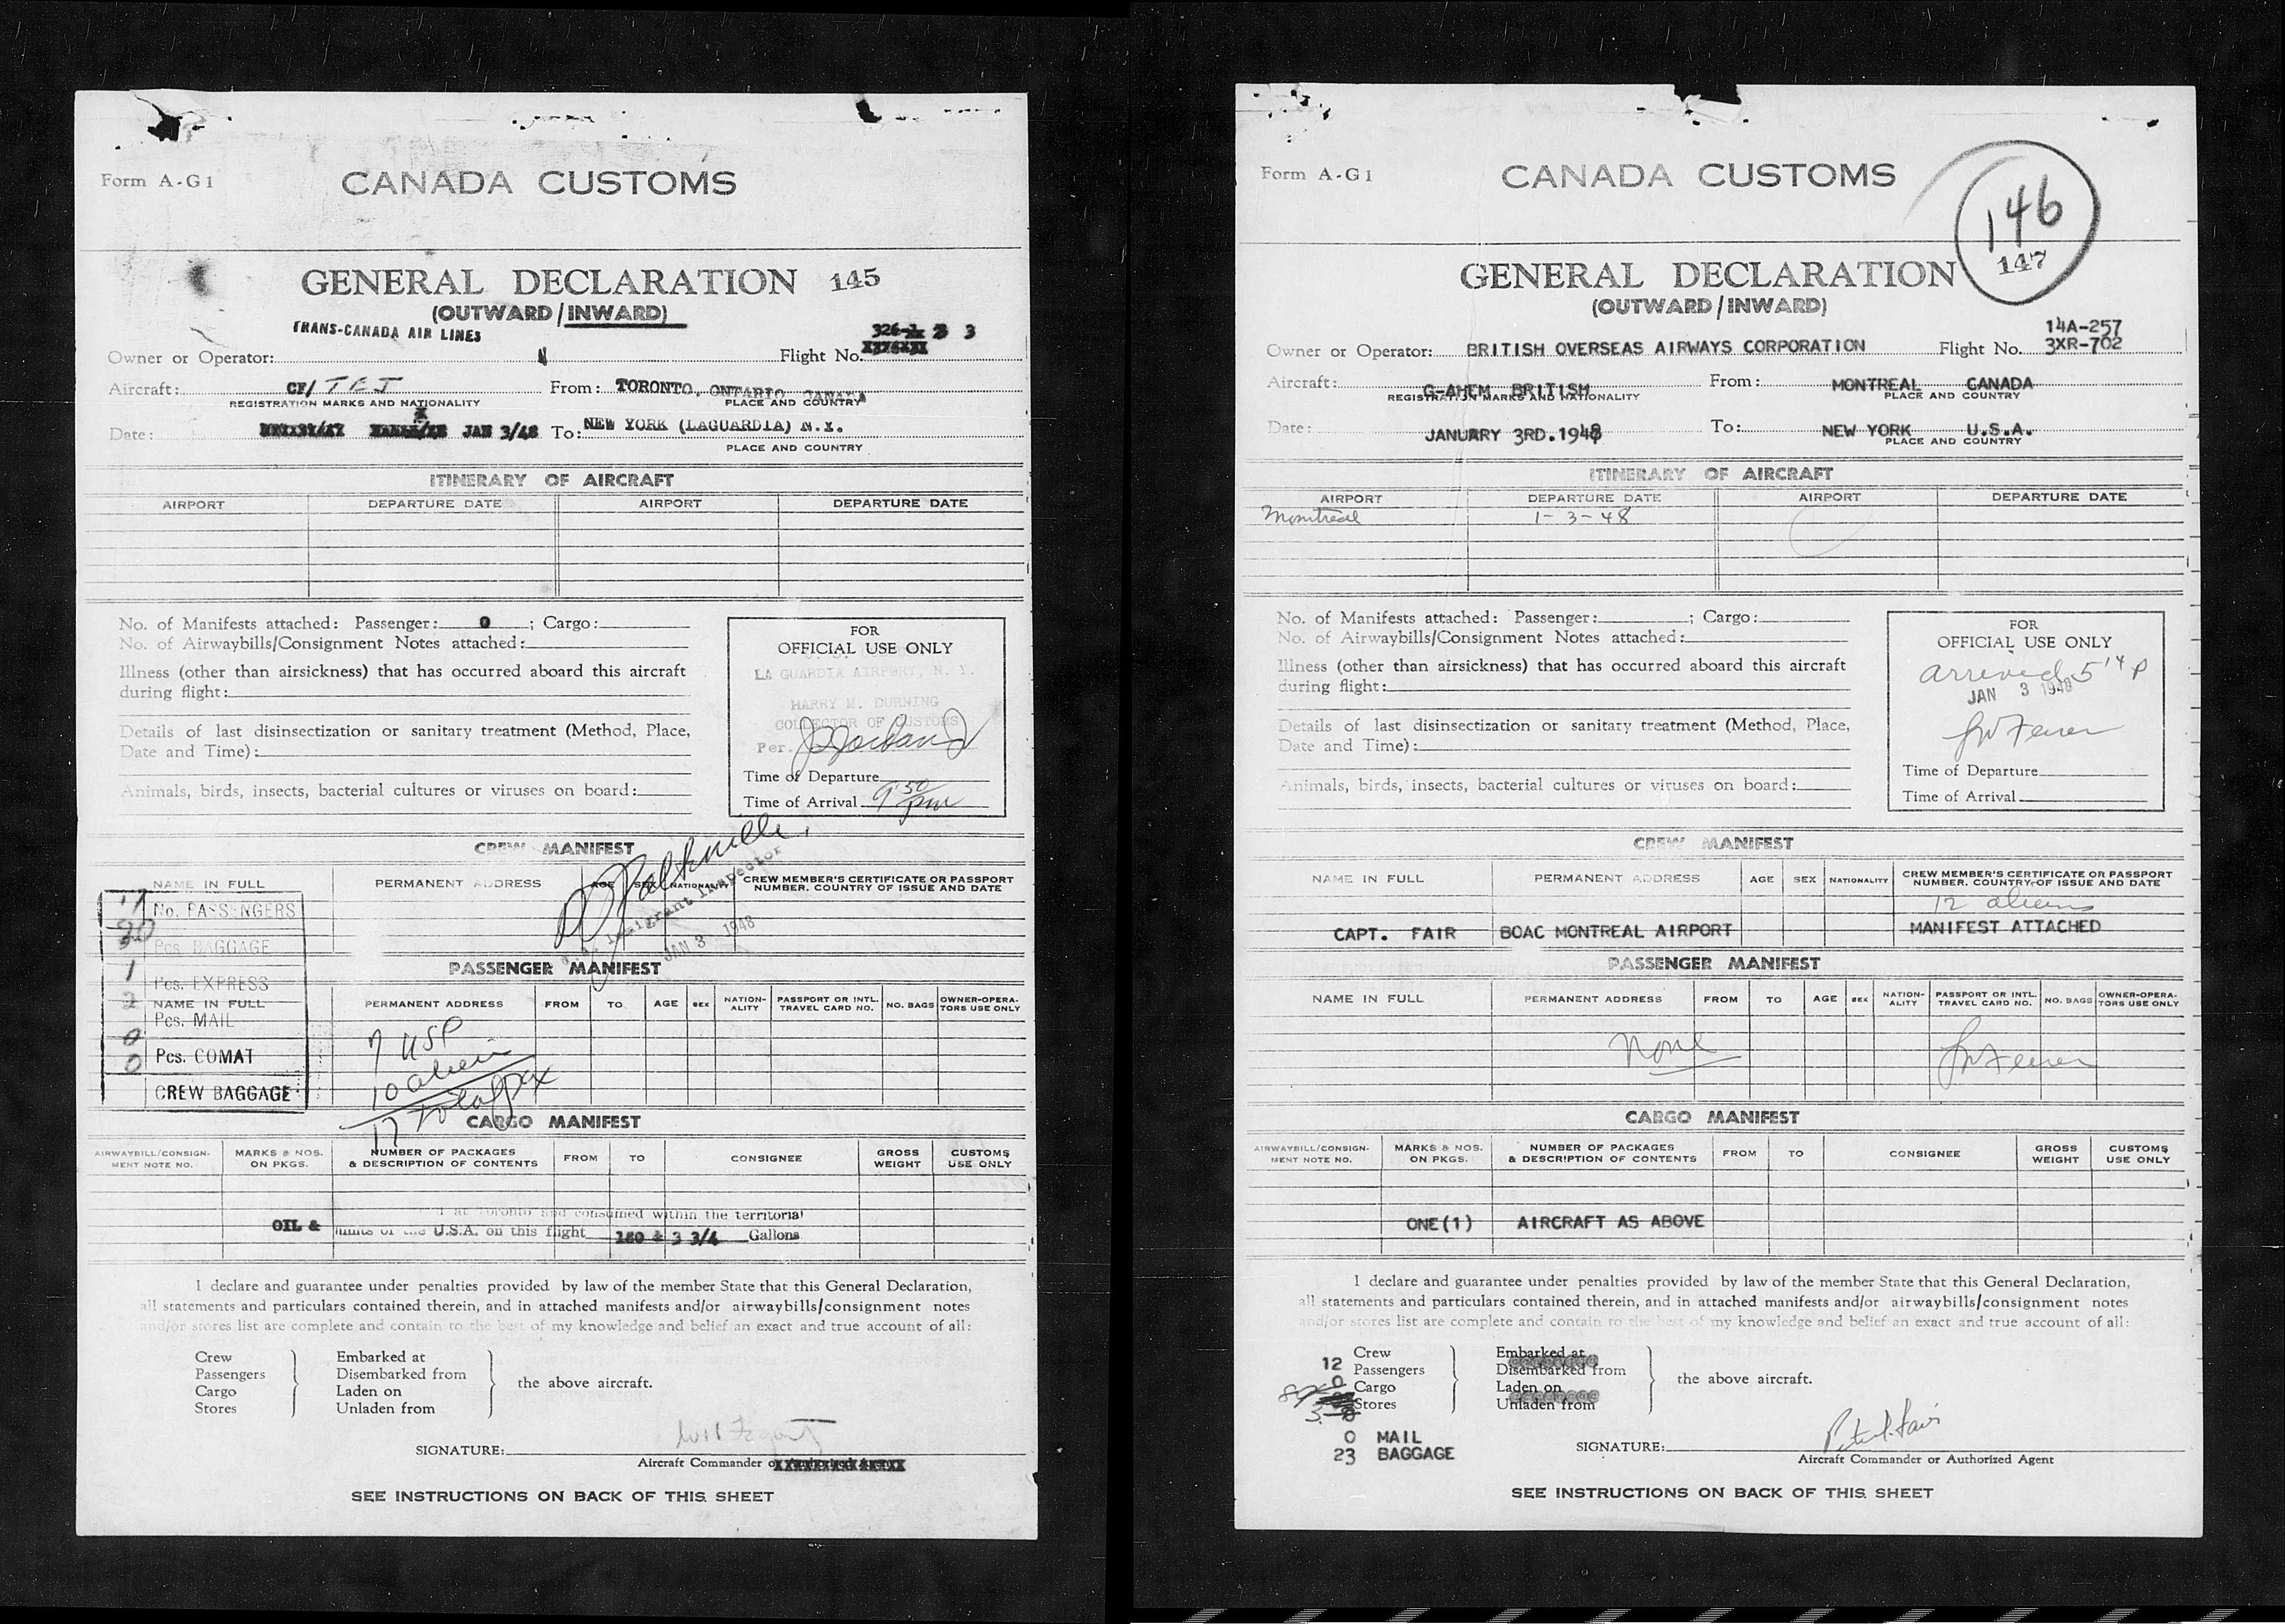 Form A-G1
CANADA CUSTOMS
GENERAL DECLARATION 145
(OUTWARD/INWARD)
TRANS-CANADA AIR LINES
326- 3
Owner or Operator: Flight No.
Aircraft: CF/ TEJ From: TORONTO, ONTARIO CANADA
REGISTRATION MARKS AND NATIONALITY PLACE AND COUNTRY
Date: JAN 3/48 To: NEW YORK (LAGUARDIA) N.Y.
PLACE AND COUNTRY
ITINERARY OF AIRCRAFT
AIRPORT DEPARTURE DATE AIRPORT DEPARTURE DATE
No. of Manifests attached: Passenger: 0 ; Cargo:
No. of Airwaybills/Consignment Notes attached:
Illness (other than airsickness) that has occurred aboard this aircraft
during flight:
Details of last disinsectization or sanitary treatment (Method, Place,
Date and Time):
Animals, birds, insects, bacterial cultures or viruses on board:
FOR
OFFICIAL USE ONLY
LA GUARDIA AIRPORT, N. Y.
HARRY M. DURNING
COLLECTOR OF CUSTOMS
Per.
Time of Departure
Time of Arrival 9 50 pm
CREW MANIFEST
NAME IN FULL PERMANENT ADDRESS AGE SEX NATIONALITY CREW MEMBER'S CERTIFICATE OR PASSPORT
NUMBER. COUNTRY OF ISSUE AND DATE
Immigrant Inspector
JAN 3 1948
17 No. PASSENGERS
20 Pcs. BAGGAGE
1 Pcs. EXPRESS
2 Pcs. MAIL
0 Pcs. COMAT
0 CREW BAGGAGE
PASSENGER MANIFEST
NAME IN FULL PERMANENT ADDRESS FROM TO AGE SEX NATION-ALITY PASSPORT OR INTL. TRAVEL CARD NO. NO. BAGS OWNER-OPERA-TORS USE ONLY
7 USP
10 alien
17 total pax
CARGO MANIFEST
AIRWAYBILL/CONSIGN-MENT NOTE NO. MARKS & NOS. ON PKGS. NUMBER OF PACKAGES & DESCRIPTION OF CONTENTS FROM TO CONSIGNEE GROSS WEIGHT CUSTOMS USE ONLY
at Toronto and consumed within the territorial
OIL & limits of the U.S.A. on this flight 180 & 3 3/4 Gallons
I declare and guarantee under penalties provided by law of the member State that this General Declaration,
all statements and particulars contained therein, and in attached manifests and/or airwaybills/consignment notes
and/or stores list are complete and contain to the best of my knowledge and belief an exact and true account of all:
Crew Embarked at
Passengers Disembarked from
Cargo Laden on the above aircraft.
Stores Unladen from
SIGNATURE:
Aircraft Commander or
SEE INSTRUCTIONS ON BACK OF THIS SHEET
Form A-G1
CANADA CUSTOMS
146
147
GENERAL DECLARATION
(OUTWARD/INWARD)
14A-257
Owner or Operator: BRITISH OVERSEAS AIRWAYS CORPORATION Flight No. 3XR-702
Aircraft: G-AHEM BRITISH From: MONTREAL CANADA
REGISTRATION MARKS AND NATIONALITY PLACE AND COUNTRY
Date: JANUARY 3RD.1948 To: NEW YORK U.S.A.
PLACE AND COUNTRY
ITINERARY OF AIRCRAFT
AIRPORT DEPARTURE DATE AIRPORT DEPARTURE DATE
Montreal 1-3-48
No. of Manifests attached: Passenger: ; Cargo:
No. of Airwaybills/Consignment Notes attached:
Illness (other than airsickness) that has occurred aboard this aircraft
during flight:
Details of last disinsectization or sanitary treatment (Method, Place,
Date and Time):
Animals, birds, insects, bacterial cultures or viruses on board:
FOR
OFFICIAL USE ONLY
arrived 5 14 P
JAN 3 1948
Time of Departure
Time of Arrival
CREW MANIFEST
NAME IN FULL PERMANENT ADDRESS AGE SEX NATIONALITY CREW MEMBER'S CERTIFICATE OR PASSPORT
NUMBER. COUNTRY OF ISSUE AND DATE
12 aliens
CAPT. FAIR BOAC MONTREAL AIRPORT MANIFEST ATTACHED
PASSENGER MANIFEST
NAME IN FULL PERMANENT ADDRESS FROM TO AGE SEX NATION-ALITY PASSPORT OR INTL. TRAVEL CARD NO. NO. BAGS OWNER-OPERA-TORS USE ONLY
None
CARGO MANIFEST
AIRWAYBILL/CONSIGN-MENT NOTE NO. MARKS & NOS. ON PKGS. NUMBER OF PACKAGES & DESCRIPTION OF CONTENTS FROM TO CONSIGNEE GROSS WEIGHT CUSTOMS USE ONLY
ONE(1) AIRCRAFT AS ABOVE
I declare and guarantee under penalties provided by law of the member State that this General Declaration,
all statements and particulars contained therein, and in attached manifests and/or airwaybills/consignment notes
and/or stores list are complete and contain to the best of my knowledge and belief an exact and true account of all:
12 Crew Embarked at
0 Passengers Disembarked from
Cargo Laden on the above aircraft.
Stores Unladen from
0 MAIL
23 BAGGAGE
SIGNATURE:
Aircraft Commander or Authorized Agent
SEE INSTRUCTIONS ON BACK OF THIS SHEET